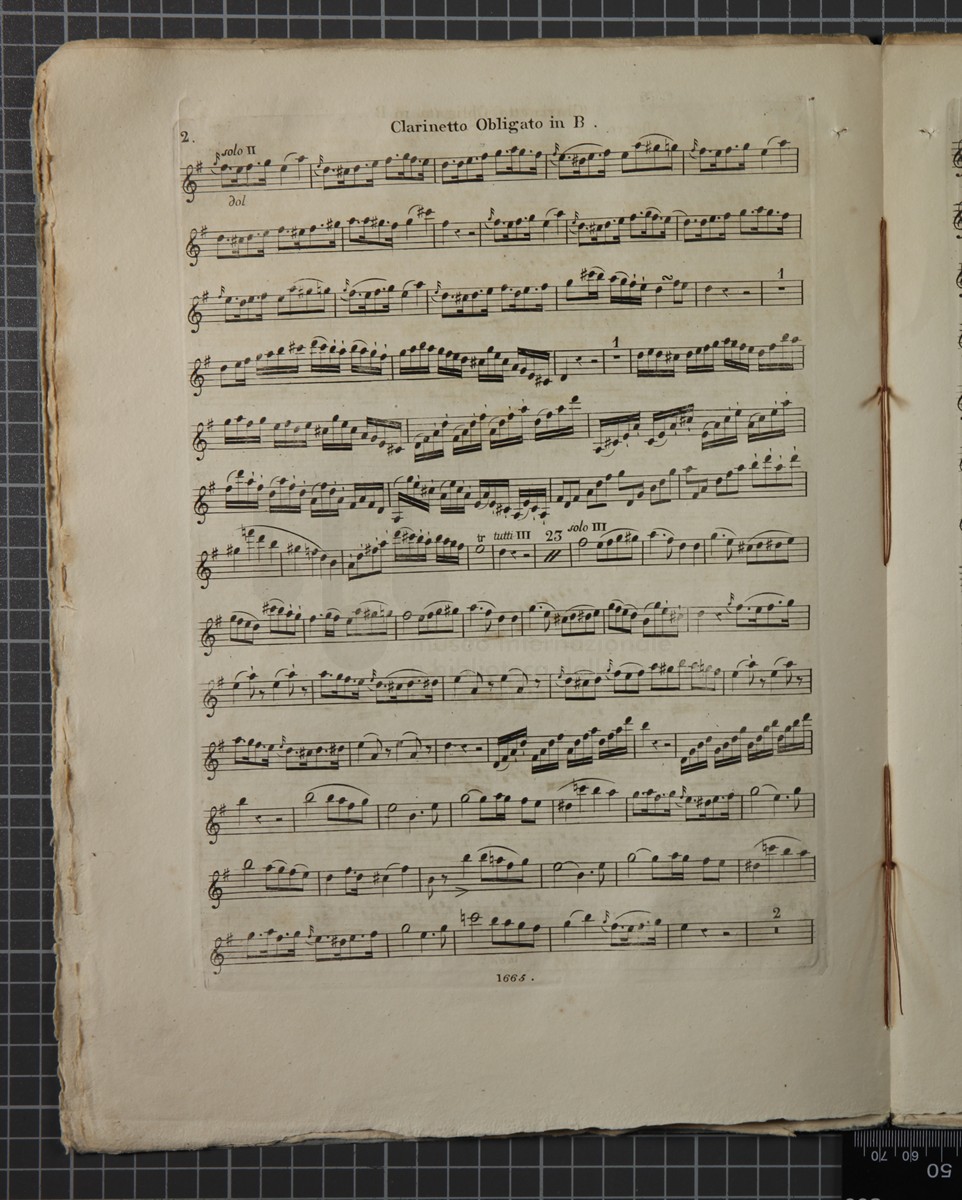 2.
Clarinetto Obligato in B .
solo II
dol
1
1
tr tutti III 23 solo III
museo internazionale
2
1665 .
70 60
50